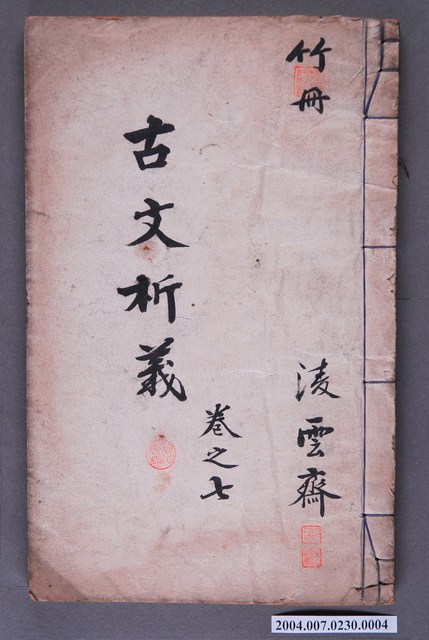 竹冊
古文析義
卷之七
淩雲齋
2004.007.0230.0004